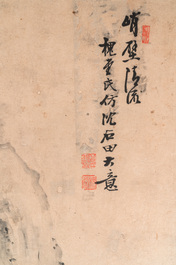 峭壁清流
槐堂氏仿沈石田大意